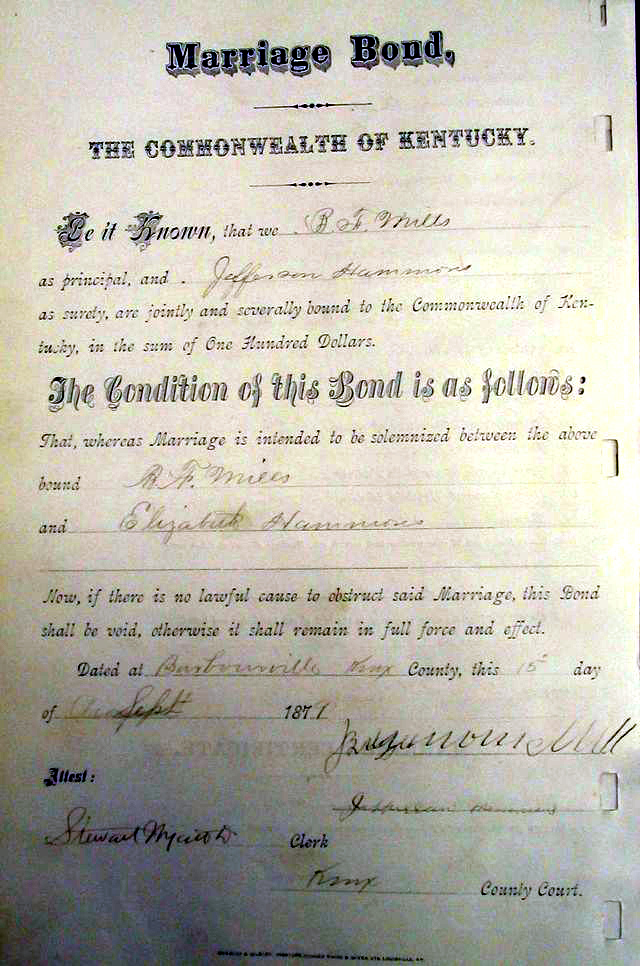 Marriage Bond,
THE COMMONWEALTH OF KENTUCKY.
Be it Known, that we B. F. Mills
as principal, and Jefferson Hammons
as surety, are jointly and severally bound to the Commonwealth of Ken-
tucky, in the sum of One Hundred Dollars.
The Condition of this Bond is as follows:
That, whereas Marriage is intended to be solemnized between the above
bound B. F. Mills
and Elizabeth Hammons
Now, if there is no lawful cause to obstruct said Marriage, this Bond
shall be void, otherwise it shall remain in full force and effect.
Dated at Barbourville Knox County, this 15 day
of Sept 1879
Attest:
Jefferson Hammons
Stewart Clerk
Knox County Court.